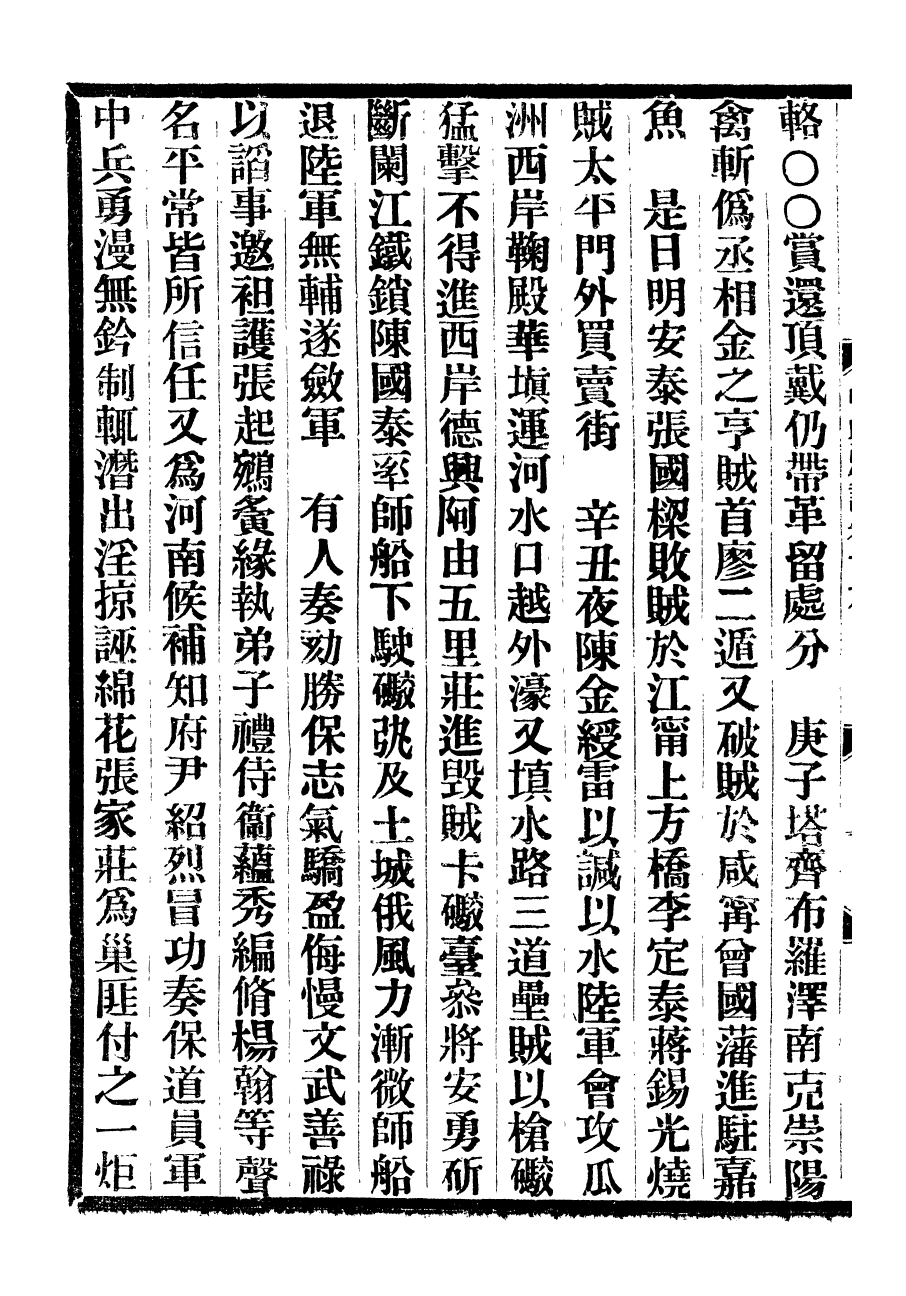 輅○○賞還頂戴仍帶革留處分　庚子塔齊布羅澤南克崇陽
禽斬僞丞相金之亨賊首廖二遁又破賊於咸甯曾國藩進駐嘉
魚　是日明安泰張國樑敗賊於江甯上方橋李定泰蔣錫光燒
賊太平門外買賣街　辛丑夜陳金綬雷以諴以水陸軍會攻瓜
洲西岸鞠殿華塡運河水口越外濠又填水路三道壘賊以槍礮
猛擊不得進西岸德興阿由五里莊進毀賊卡礮臺叅將安勇斫
斷闌江鐵鎖陳國泰率師船下駛礮㢮及土城俄風力漸微師船
退陸軍無輔遂斂軍　有人奏劾勝保志氣驕盈侮慢文武善祿
以謟事邀袒護張起鵷夤緣執弟子禮侍衞蘊秀編脩楊翰等聲
名平常皆所信任又爲河南候補知府尹紹烈冒功奏保道員軍
中兵勇漫無鈐制輒潛出淫掠誣綿花張家莊爲巢匪付之一炬